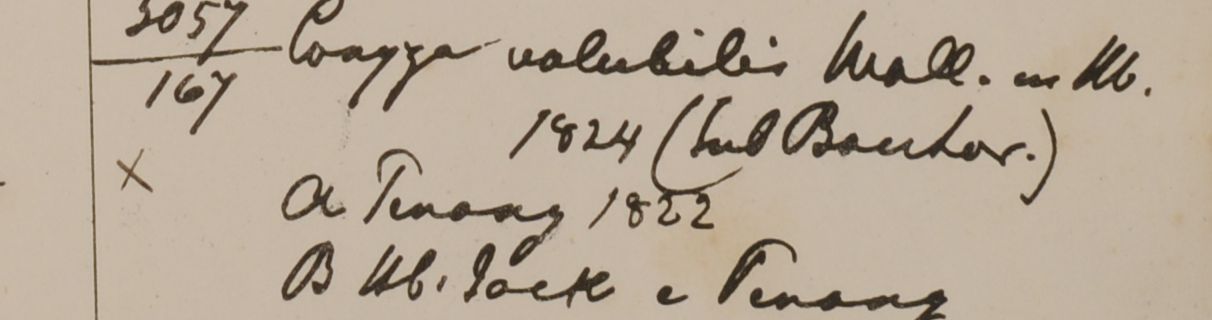 3057 Conyza volubilis Wall. in Hb.
167
1824 (sub Bacchar.)
X
a Penang 1822
B Hb. Jack e Penang